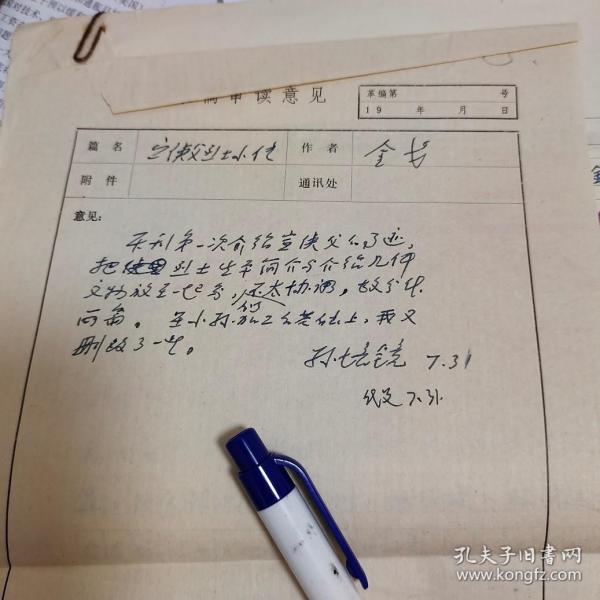 审读意见
革编第 号
19 年 月 日
篇名 宣侠父烈士小传 作者 金戈
附件 通讯处
意见：
本刊第一次介绍宣侠父的事迹，
把烈士生平简介与介绍几件
文物放在一起写，不太协调，故分成
两篇。在小孙加工的基础上，我又
删改了一些。
孙培镜 7.31
7.31.
孔夫子旧书网
www.kongfz.com